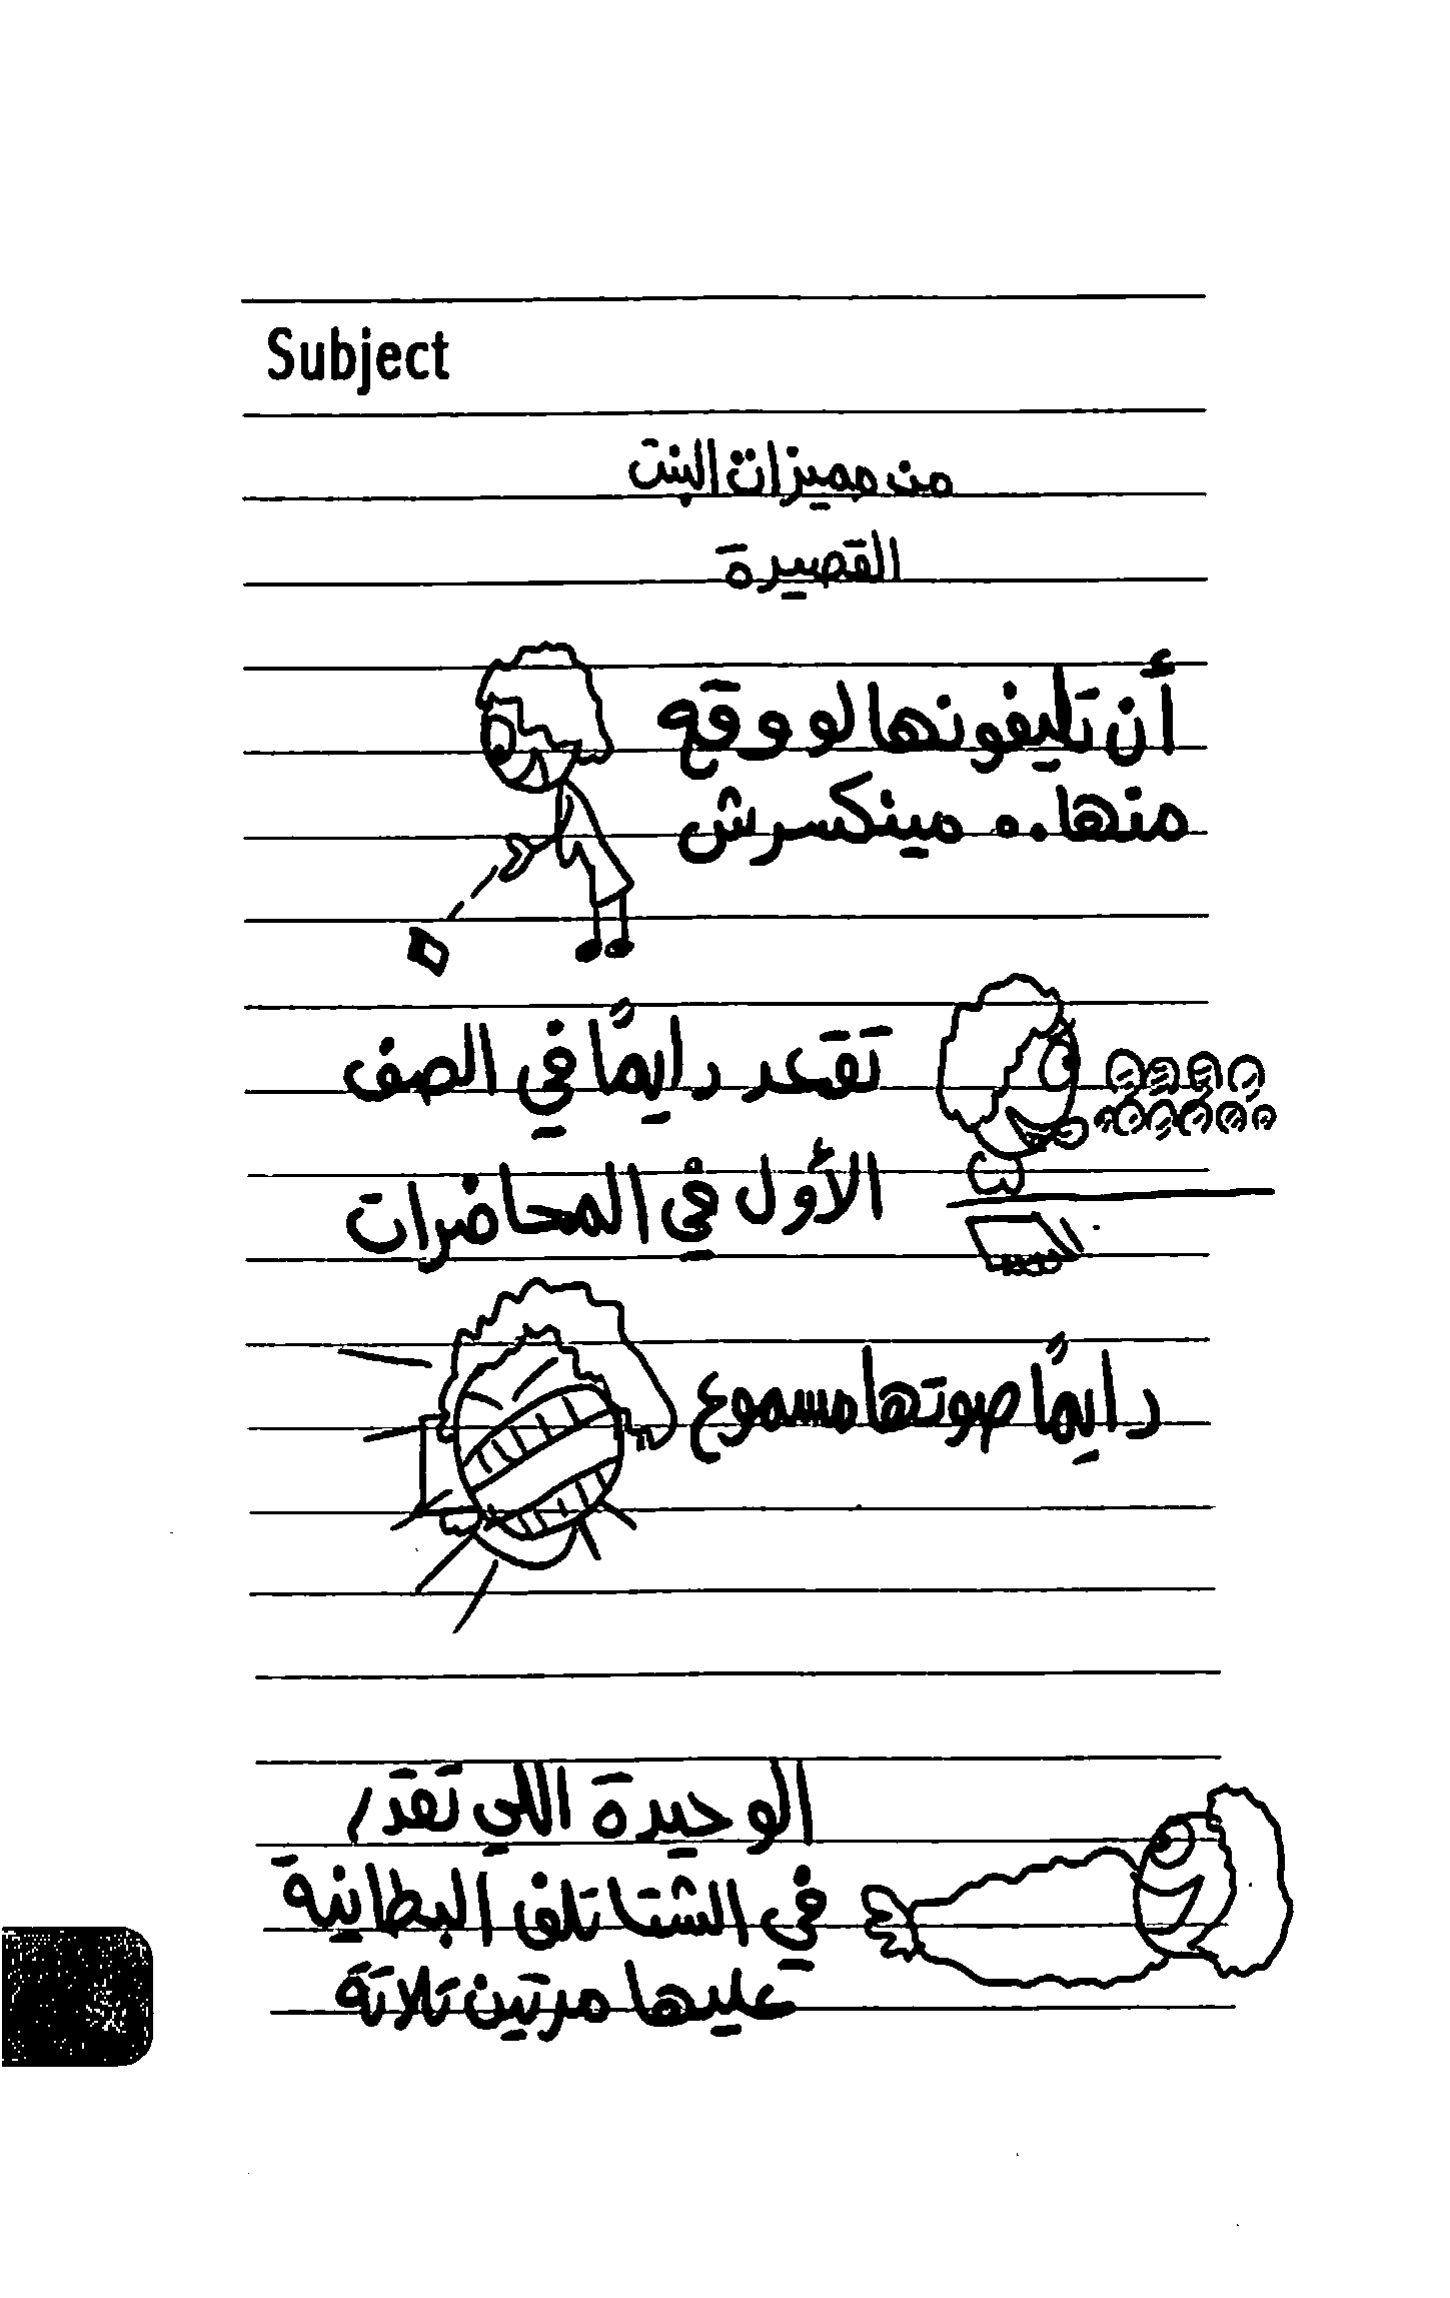 Subject
من مميزات البنت
القصيرة
أن تليفونها لو وقع
منها.. مينكسرش
تقعد دايمًا في الصف
الأول في المحاضرات
دايمًا صوتها مسموع
الوحيدة اللي تقدر
في الشتا تلف البطانية
عليها مرتين تلاتة